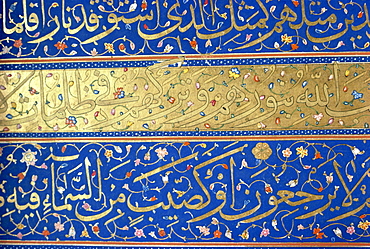 مثلهم كمثل الذى استوقد نارا فلما
الله بنورهم وتركهم فى ظلمات لا
لا يرجعون او كصيب من السماء فيه